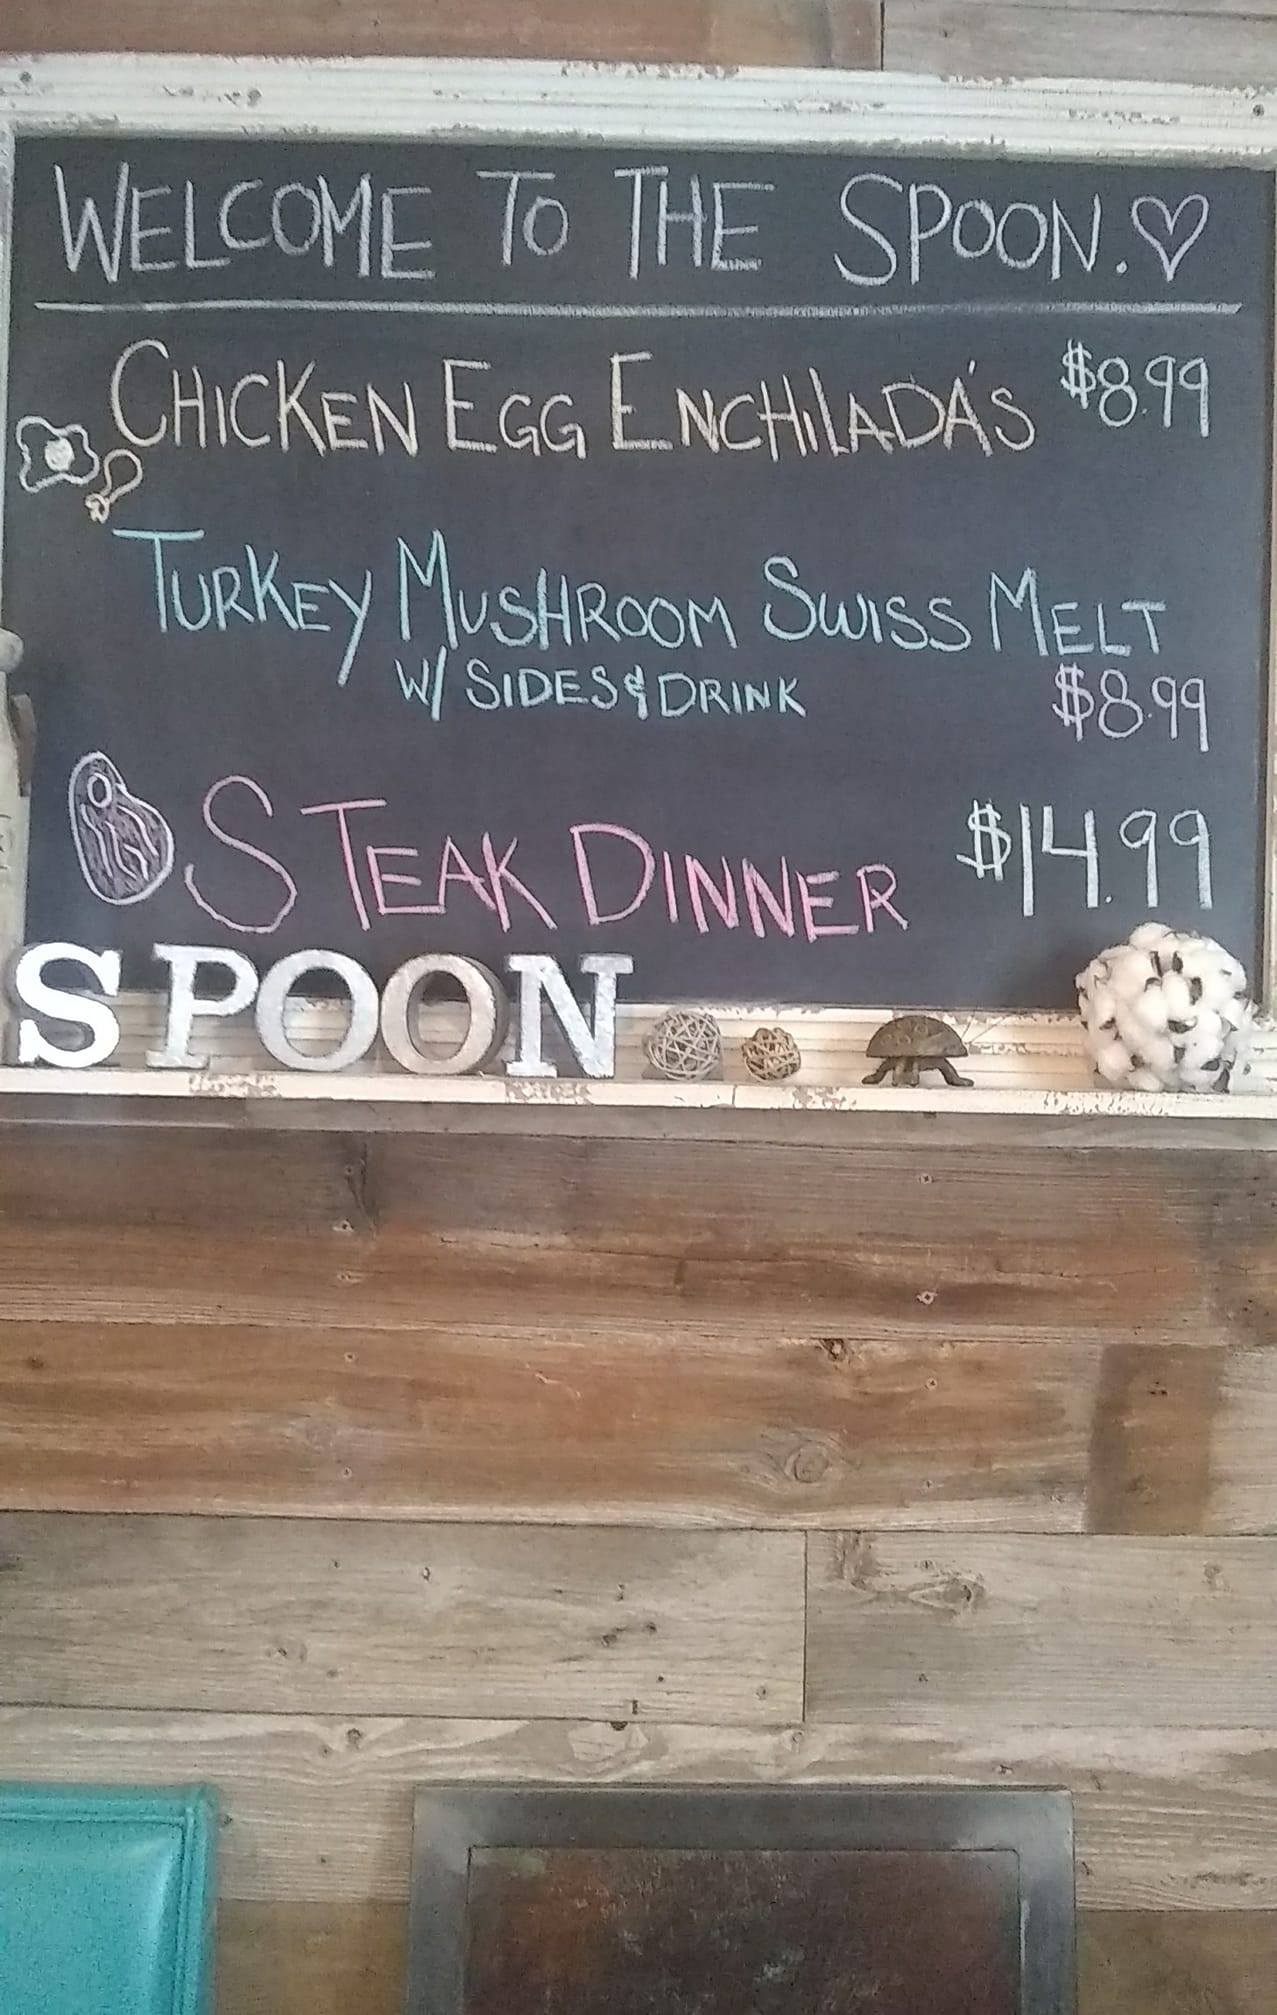 WELCOME TO THE SPOON.♡
CHICKEN EGG ENCHILADA'S $8.99
TURKEY MUSHROOM SWISS MELT
W/ SIDES & DRINK $8.99
STEAK DINNER $14.99
SPOON